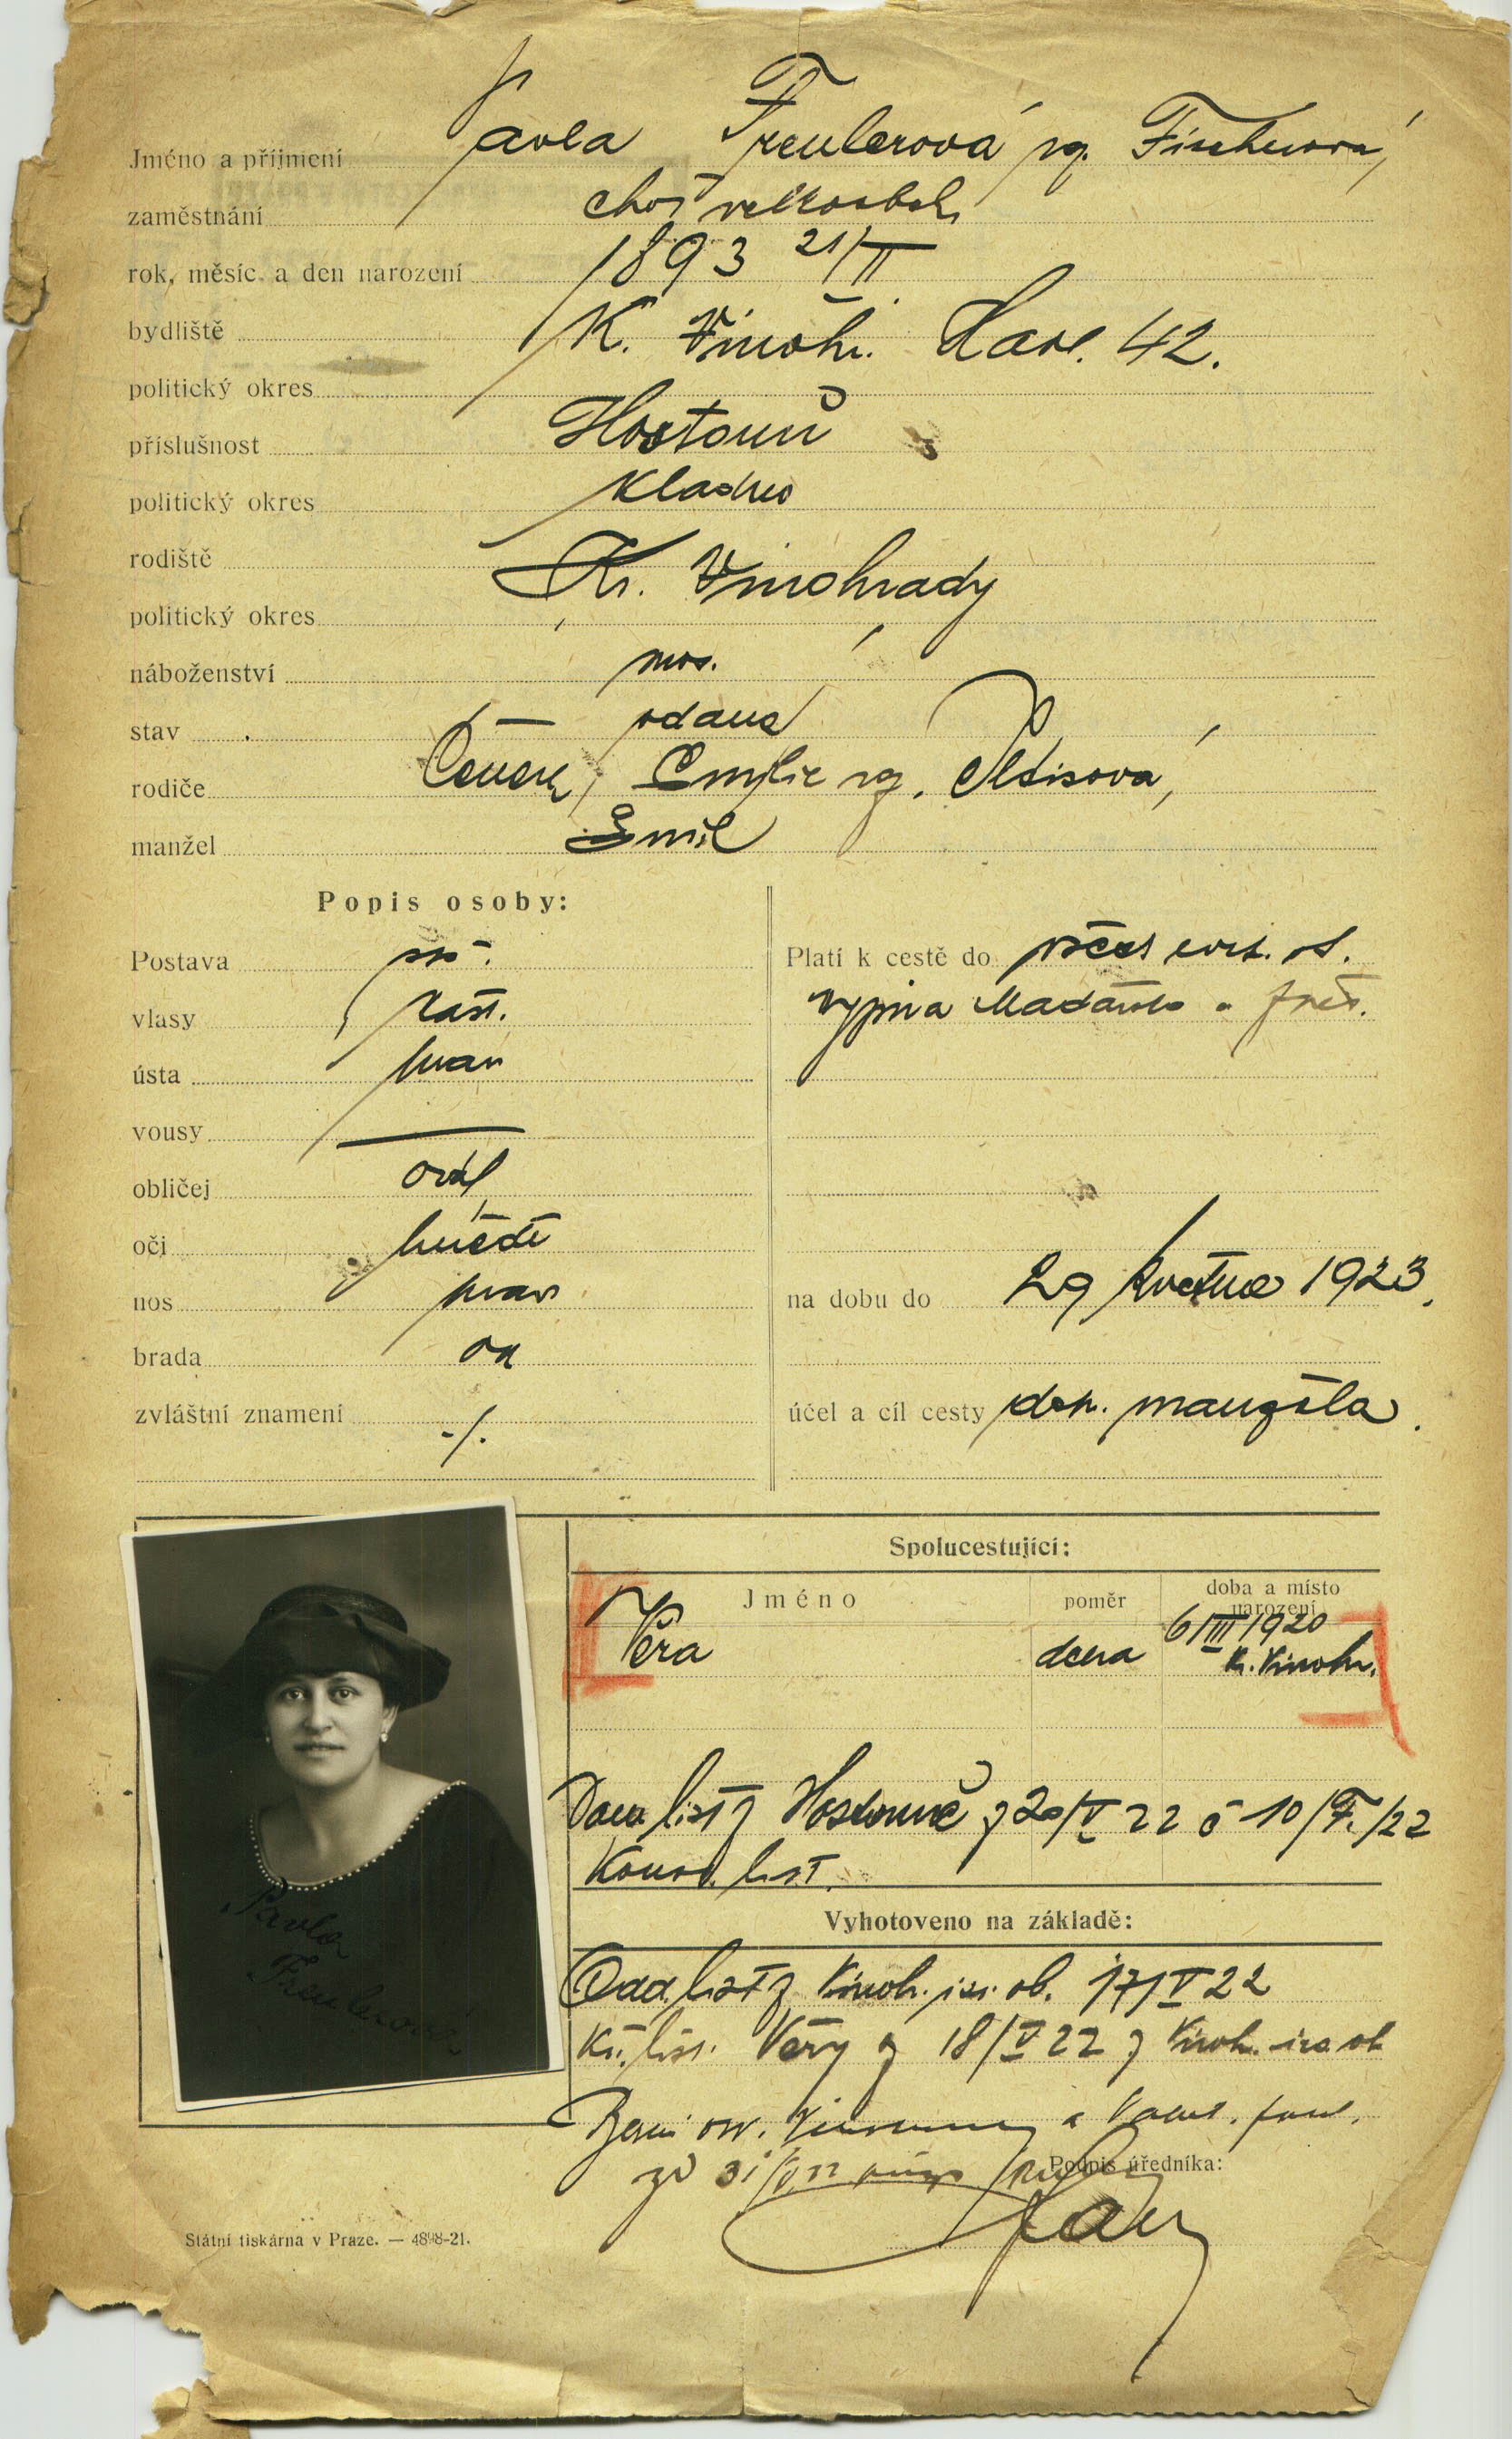 Jméno a příjmení Pavla Freulerová roz. Fischerova,
zaměstnání choť velkoobch.
rok, měsíc a den narození 1893 21/II
bydliště K. Vinohr. Havl. 42.
politický okres
příslušnost Hostouň
politický okres Kladno
rodiště Kr. Vinohrady
politický okres
náboženství mos.
stav vdaná
rodiče Čeněk, Emilie roz.
manžel Emil
Popis osoby:
Postava
vlasy kašt.
ústa
vousy —
obličej ovál
oči hnědé
nos
brada ov
zvláštní znamení -/.
Platí k cestě do všech evr. st.
vyjma Maďarska a
na dobu do 29 května 1923.
účel a cíl cesty dop. manžela.
Spolucestující:
Jméno poměr doba a místo narození
Věra dcera 6/III 1920
K. Vinohr.
Dom. list z Hostouně z 20/V 22 č 10/F./22
list.
Vyhotoveno na základě:
Odd. list z Vinoh. 17/V 22
Kř. list. Věry z 18/V 22 z Vinoh.
a
31/V 22
Podpis úředníka:
Pavla
Freulerová
Státní tiskárna v Praze. — 4898-21.